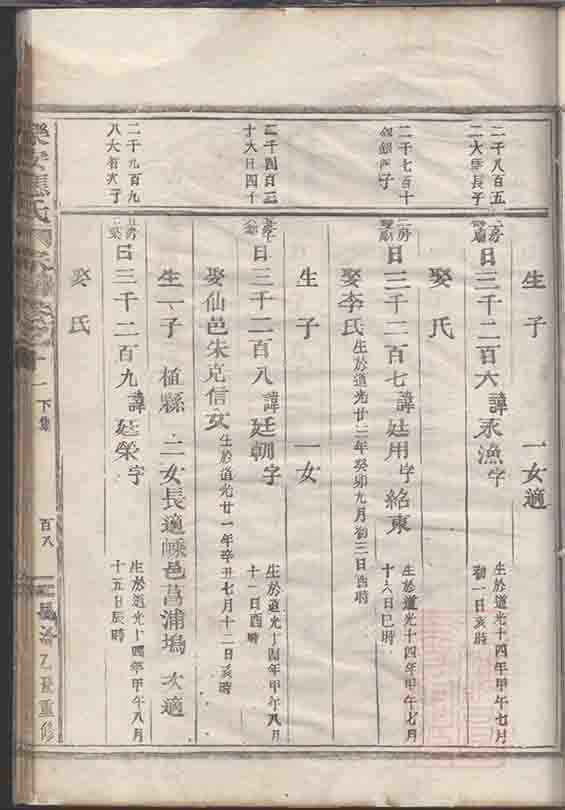 生子 一女適
二千八百五
二大長子
房
日三千二百六諱永漁字
生於道光十四年甲午七月
初一日亥時
娶氏
二千七百十
子
房
日三千二百七諱廷用字紹東
生於道光十四年甲午七月
十六日巳時
娶李氏生於道光廿三年癸卯九月初三日酉時
生子 一女
二千四百三
十六日四子
日三千二百八諱廷朝字
生於道光十四年甲午八月
十一日酉時
娶仙邑朱克信女生於道光廿一年辛丑七月十二日亥時
生一子植縣 二女長適嵊邑菖浦塢 次適
二千九百九
八大有次子
房
日三千二百九諱廷榮字
生於道光十四年甲午八月
十五日辰時
娶氏
樂安氏
下集
百八
乙丑重修